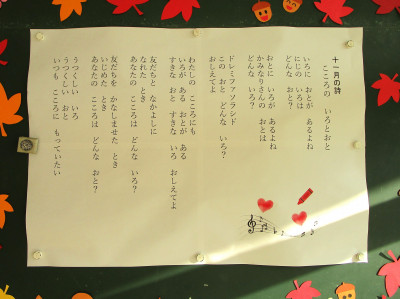 十一月の詩
こころの いろとおと
いろに おとが あるよね
にじの いろは
どんな おと？
おとに いろが あるよね
かみなりさんの おとは
どんな いろ？
ドレミファソラシド
この おと どんな いろ？
おしえてよ
わたしの こころにも
いろが ある おとが ある
すきな おと すきな いろ おしえてよ
友だちと なかよしに
なれた とき
あなたの こころは どんな いろ？
友だちを かなしませた とき
いじめた とき
あなたの こころは どんな おと？
うつくしい いろ
うつくしい おと
いつも こころに もっていたい